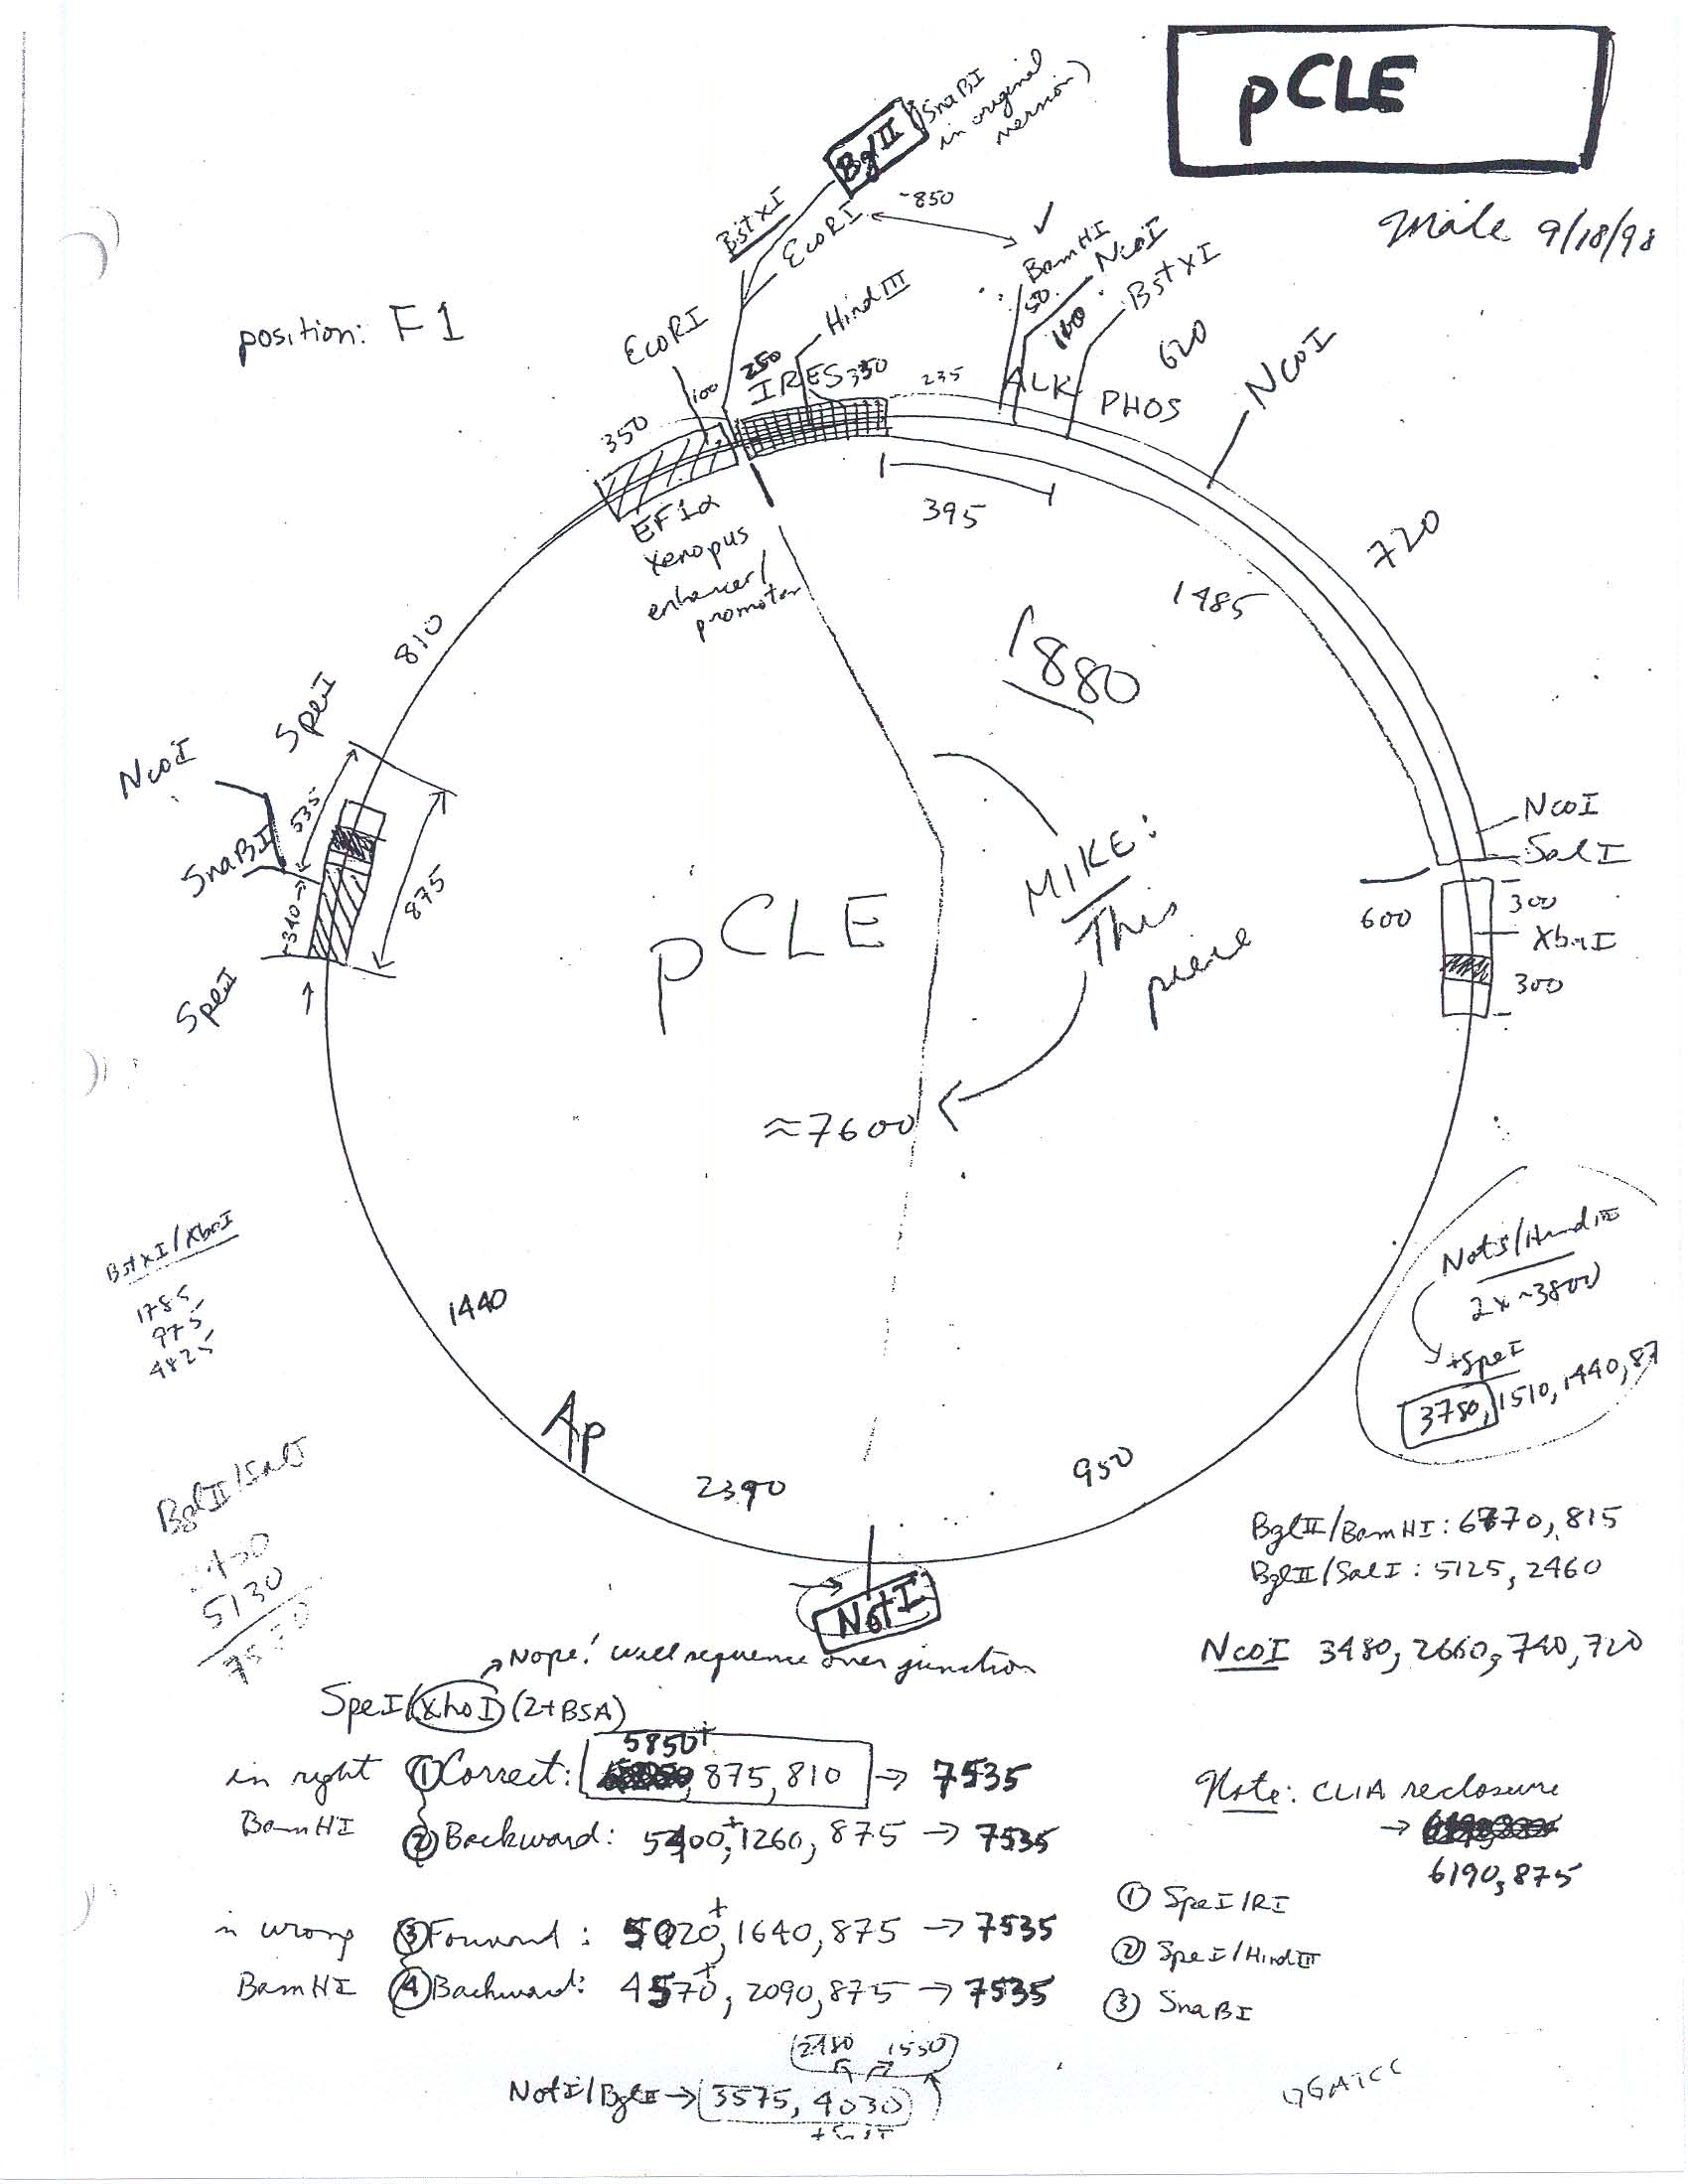 pCLE
Male 9/18/98
position: F1
BglII
(SnaBI
in original
version)
BstXI
EcoRI
~850
✓
BamHI
50
NcoI
100
BstXI
620
NcoI
EcoRI
HindIII
350
100
250
IRES
350
235
ALK
PHOS
395
EF1α
Xenopus
enhancer/
promoter
720
1485
1880
810
SpeI
NcoI
SnaBI
535
340
875
SpeI
NcoI
SalI
600
300
XbaI
300
pCLE
MIKE:
This
piece
≈7600
BstXI/XbaI
1785
975
4825
1440
Ap
2390
950
NotI
NotI/HindIII
2x ~3800
+SpeI
3780, 1510, 1440, 87
BglII/SalI
5130
BglII/BamHI: 6770, 815
BglII/SalI: 5125, 2460
NcoI 3480, 2660, 740, 720
Nope! will sequence over junction
SpeI/XhoI (2+BSA)
in right
BamHI
5850+
① Correct: 875, 810 → 7535
② Backward: 5400+, 1260, 875 → 7535
in wrong
BamHI
③ Forward: 5020+, 1640, 875 → 7535
④ Backward: 4570+, 2090, 875 → 7535
Note: CLIA reclosure
→
6190, 875
① SpeI/RI
② SpeI/HindIII
③ SnaBI
2480 1550
NotI/BglI → 3575, 4030